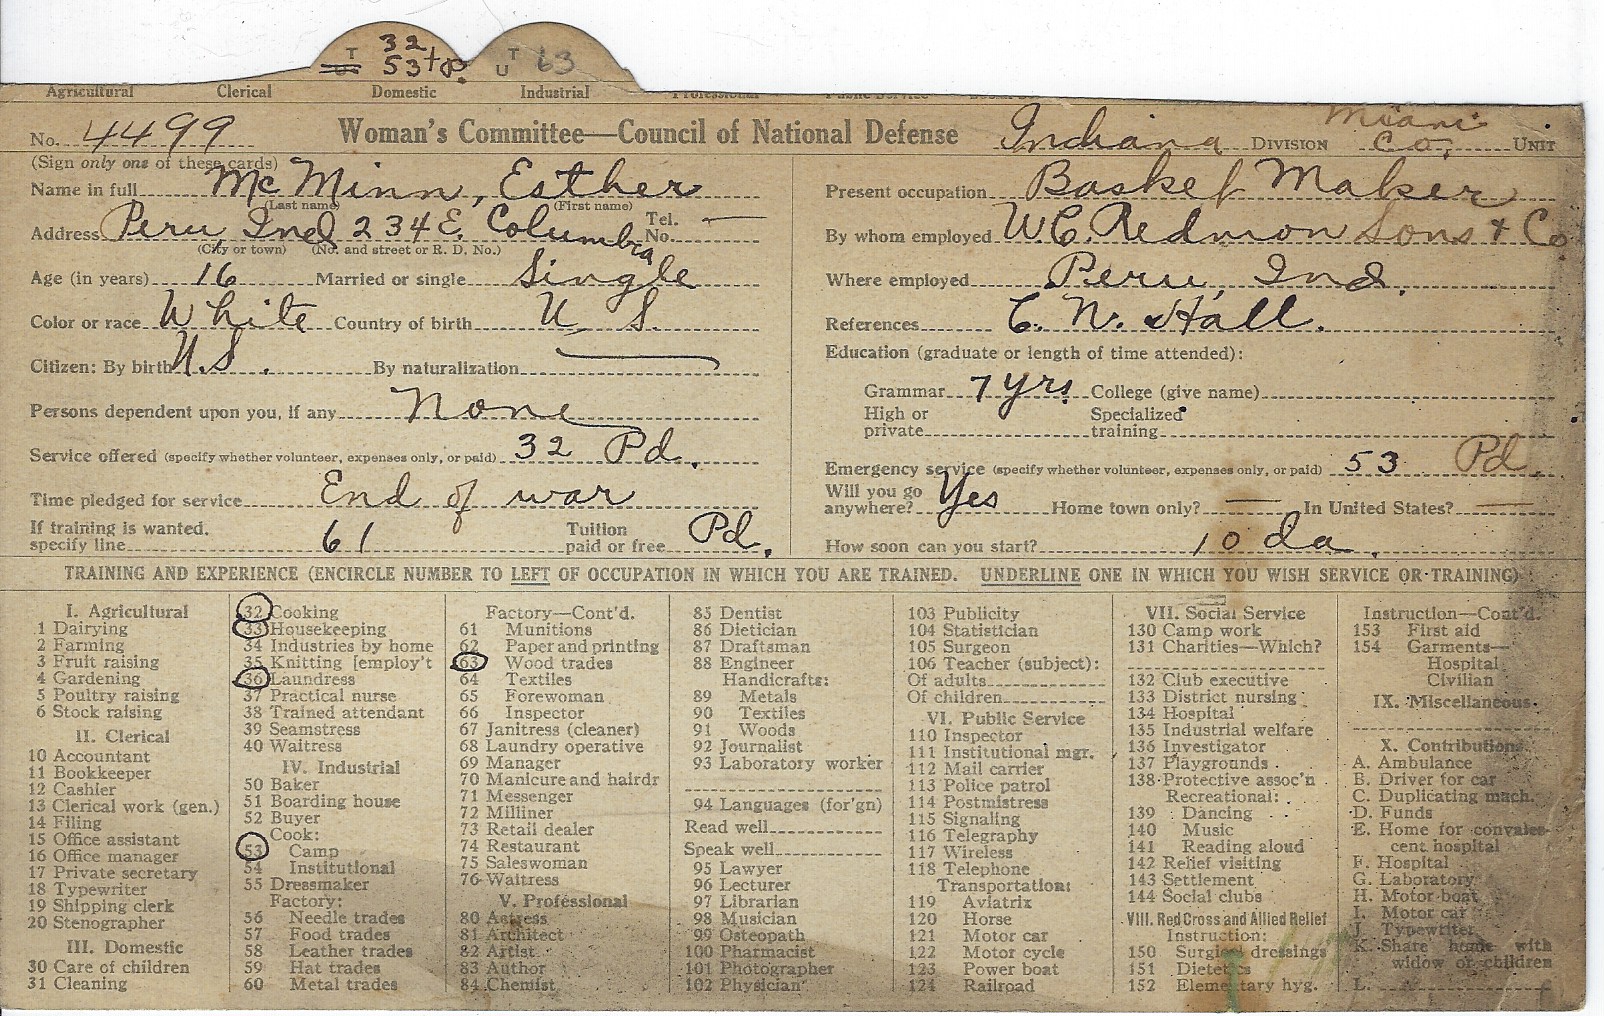 T 32
53 + P.
T
U 63
Agricultural Clerical Domestic Industrial Professional
No. 4499 Woman's Committee—Council of National Defense Indiana DIVISION Miami Co. UNIT
(Sign only one of these cards)
Name in full McMinn, Esther
(Last name) (First name)
Address Peru Ind 234 E. Columbia Tel. No. —
(City or town) (No. and street or R. D. No.)
Age (in years) 16 Married or single Single
Color or race White Country of birth U. S.
Citizen: By birth U.S. By naturalization —
Persons dependent upon you, if any None
Service offered (specify whether volunteer, expenses only, or paid) 32 Pd.
Time pledged for service End of war
If training is wanted, specify line 61 Tuition paid or free Pd.
Present occupation Basket Maker
By whom employed W.C. Redmon Sons & Co
Where employed Peru, Ind.
References C. N. Hall.
Education (graduate or length of time attended):
Grammar 7 yrs. College (give name)
High or private Specialized training
Emergency service (specify whether volunteer, expenses only, or paid) 53 Pd.
Will you go anywhere? Yes Home town only? — In United States? —
How soon can you start? 10 da.
TRAINING AND EXPERIENCE (ENCIRCLE NUMBER TO LEFT OF OCCUPATION IN WHICH YOU ARE TRAINED. UNDERLINE ONE IN WHICH YOU WISH SERVICE OR TRAINING)
I. Agricultural
1 Dairying
2 Farming
3 Fruit raising
4 Gardening
5 Poultry raising
6 Stock raising
II. Clerical
10 Accountant
11 Bookkeeper
12 Cashier
13 Clerical work (gen.)
14 Filing
15 Office assistant
16 Office manager
17 Private secretary
18 Typewriter
19 Shipping clerk
20 Stenographer
III. Domestic
30 Care of children
31 Cleaning
32 Cooking
33 Housekeeping
34 Industries by home
35 Knitting [employ't
36 Laundress
37 Practical nurse
38 Trained attendant
39 Seamstress
40 Waitress
IV. Industrial
50 Baker
51 Boarding house
52 Buyer
Cook:
53 Camp
54 Institutional
55 Dressmaker
Factory:
56 Needle trades
57 Food trades
58 Leather trades
59 Hat trades
60 Metal trades
Factory—Cont'd.
61 Munitions
62 Paper and printing
63 Wood trades
64 Textiles
65 Forewoman
66 Inspector
67 Janitress (cleaner)
68 Laundry operative
69 Manager
70 Manicure and hairdr
71 Messenger
72 Milliner
73 Retail dealer
74 Restaurant
75 Saleswoman
76 Waitress
V. Professional
80 Actress
81 Architect
82 Artist
83 Author
84 Chemist
85 Dentist
86 Dietician
87 Draftsman
88 Engineer
Handicrafts:
89 Metals
90 Textiles
91 Woods
92 Journalist
93 Laboratory worker
94 Languages (for'gn)
Read well
Speak well
95 Lawyer
96 Lecturer
97 Librarian
98 Musician
99 Osteopath
100 Pharmacist
101 Photographer
102 Physician
103 Publicity
104 Statistician
105 Surgeon
106 Teacher (subject):
Of adults
Of children
VI. Public Service
110 Inspector
111 Institutional mgr.
112 Mail carrier
113 Police patrol
114 Postmistress
115 Signaling
116 Telegraphy
117 Wireless
118 Telephone
Transportation:
119 Aviatrix
120 Horse
121 Motor car
122 Motor cycle
123 Power boat
124 Railroad
VII. Social Service
130 Camp work
131 Charities—Which?
132 Club executive
133 District nursing
134 Hospital
135 Industrial welfare
136 Investigator
137 Playgrounds
138 Protective assoc'n
Recreational:
139 Dancing
140 Music
141 Reading aloud
142 Relief visiting
143 Settlement
144 Social clubs
VIII. Red Cross and Allied Relief
Instruction:
150 Surgical dressings
151 Dietetics
152 Elementary hyg.
Instruction—Cont'd.
153 First aid
154 Garments—
Hospital
Civilian
IX. Miscellaneous
X. Contributions
A. Ambulance
B. Driver for car
C. Duplicating mach.
D. Funds
E. Home for convales-
cent hospital
F. Hospital
G. Laboratory
H. Motor boat
I. Motor car
J. Typewriter
K. Share home with
widow or children
L.